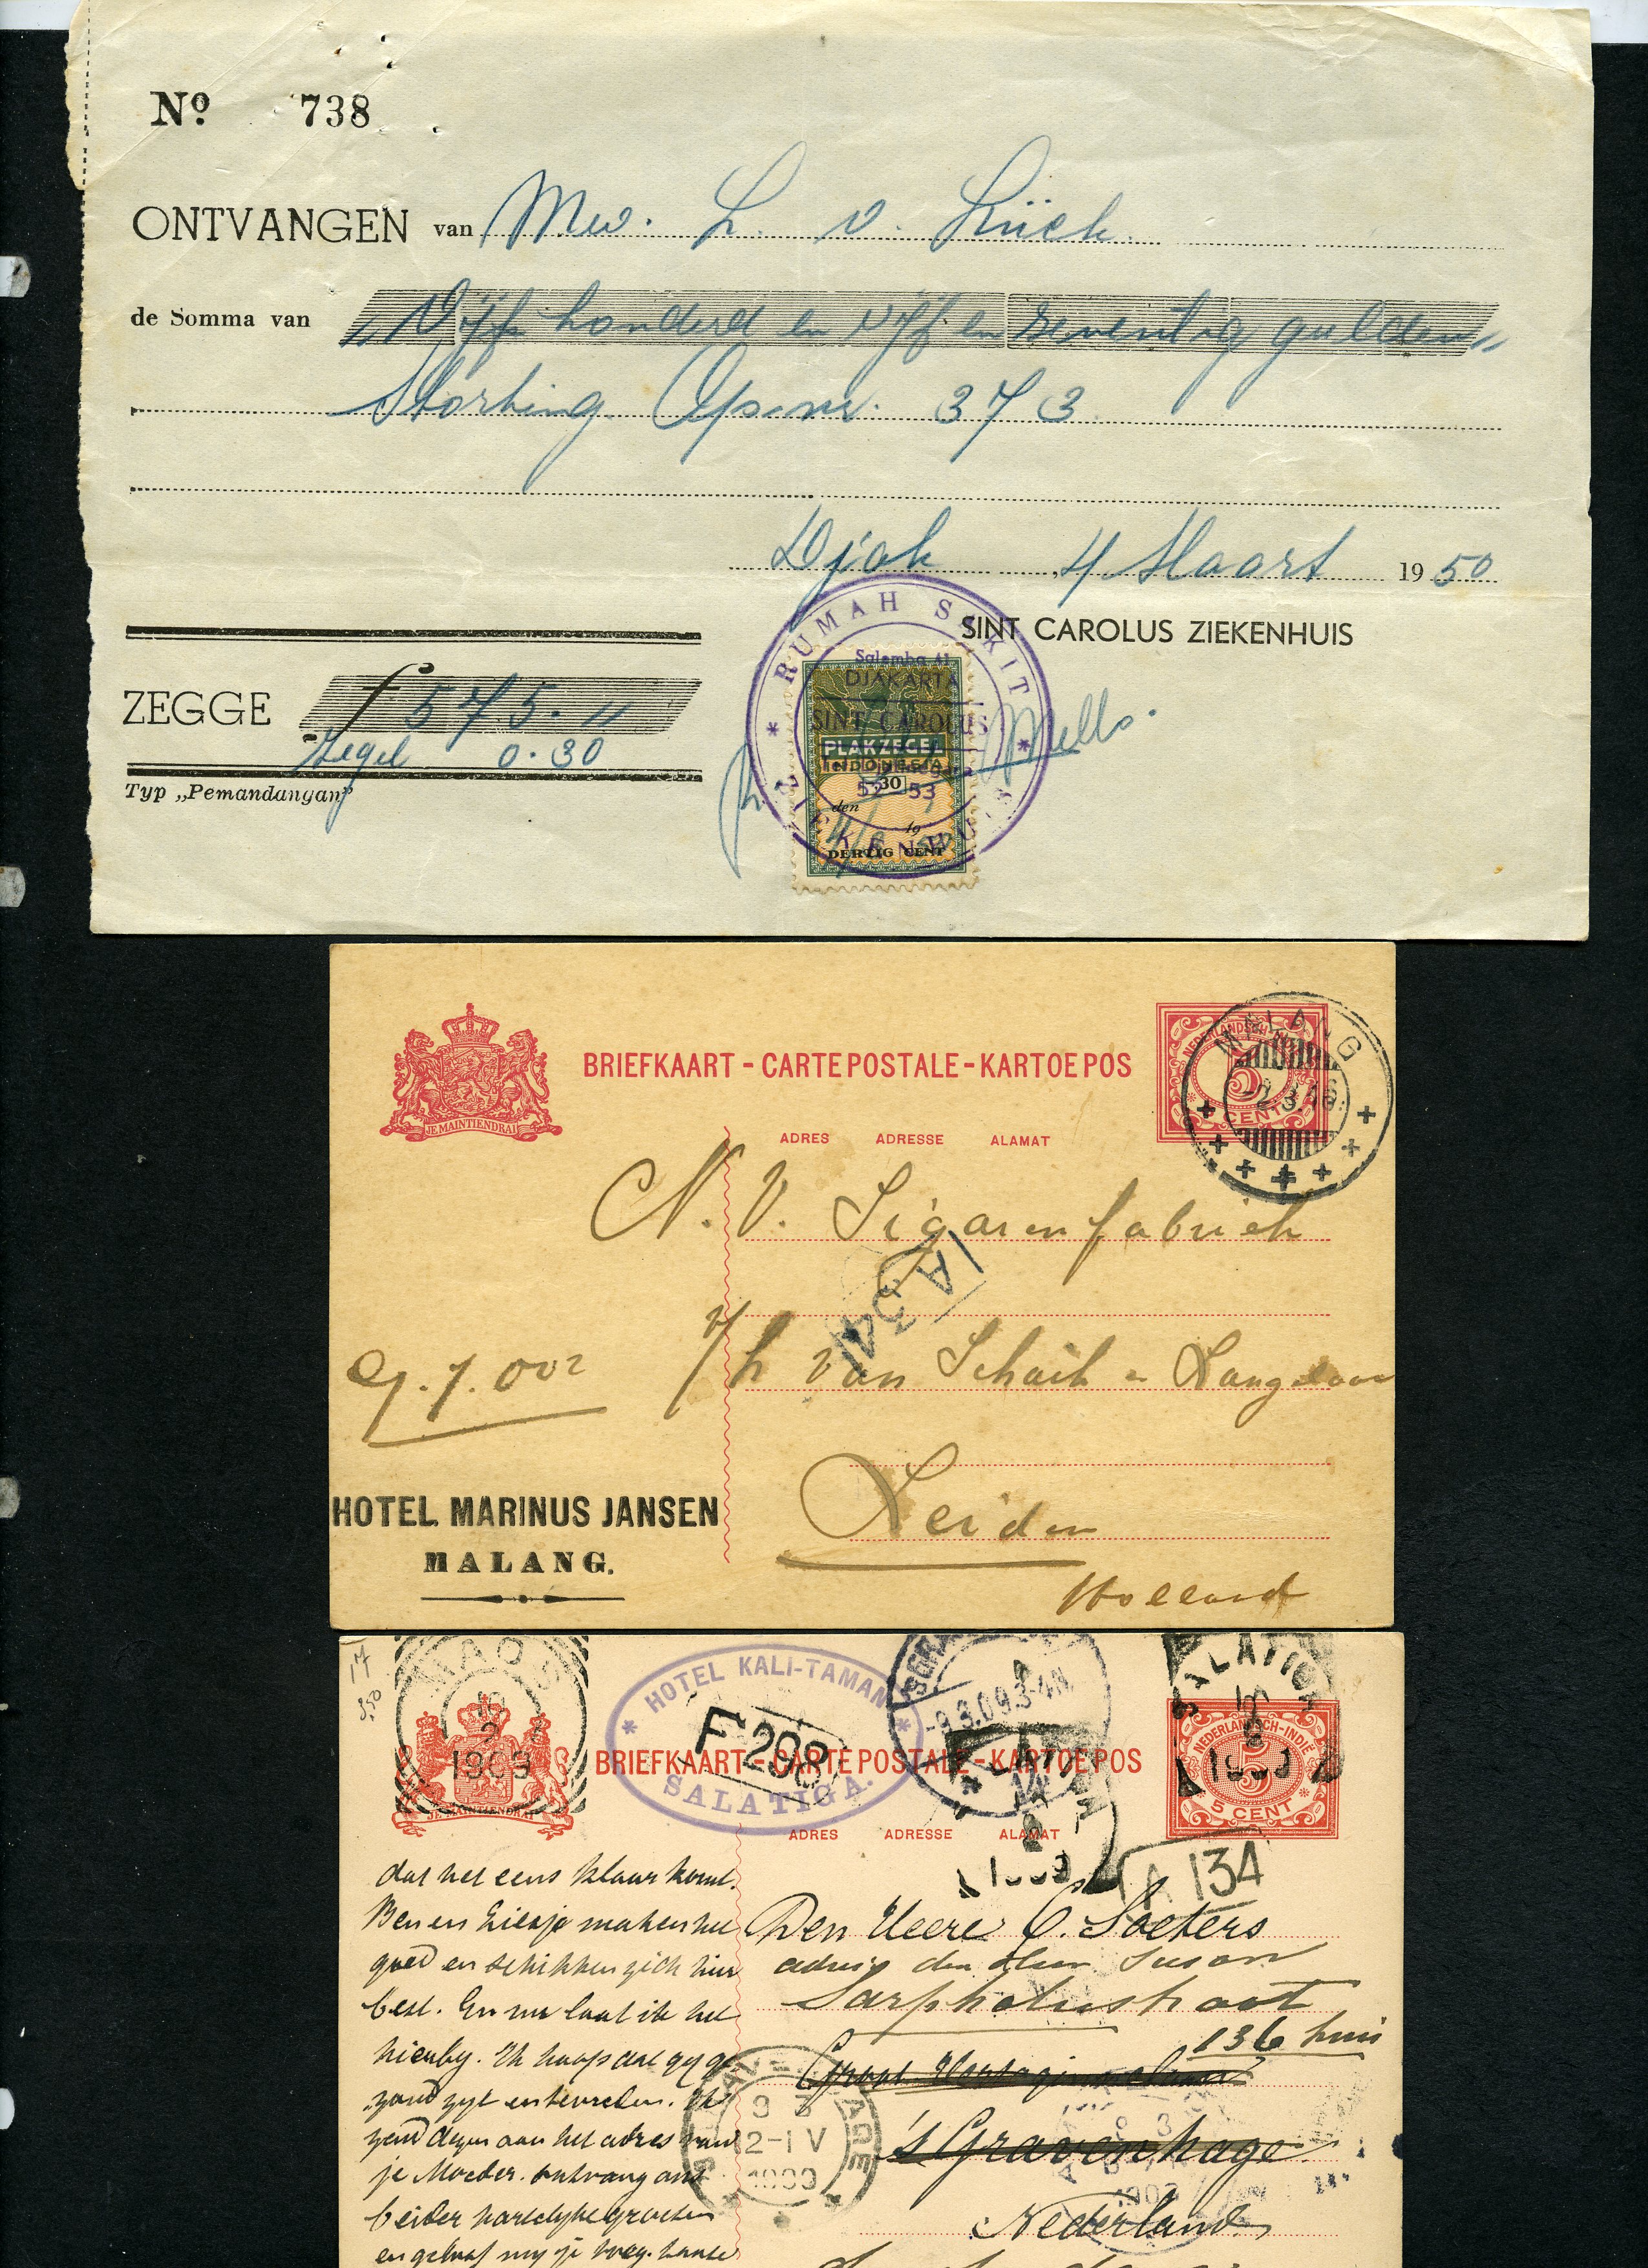 Nº 738
ONTVANGEN van Mw. L. v. Lück
de Somma van „Vijf honderd en vijf en seventig gulden„
Storting Opn.nr. 373
Djak 4 Maart 1950
SINT CAROLUS ZIEKENHUIS
ZEGGE f 575.„
Zegel 0.30
Typ „Pemandangan”
RUMAH SAKIT
Salemba 41
DJAKARTA
SINT CAROLUS
PLAKZEGEL
INDONESIA
30
52 53
den
19
DERTIG CENT
ZIEKENHUIS
BRIEFKAART - CARTE POSTALE - KARTOE POS
JE MAINTIENDRAI
NEDERLANDSCH
5
CENT
MALANG
2.3.16
ADRES ADRESSE ALAMAT
N.V. Sigarenfabriek
A 34
v/h van Schaik en Langelaar
Leiden
Holland
HOTEL MARINUS JANSEN
MALANG.
17
HOTEL KALI-TAMAN
SALATIGA.
F 298
MAOS
1909
-9.3.09 3-4N
SALATIGA
BRIEFKAART - CARTE POSTALE - KARTOE POS
JE MAINTIENDRAI
NEDERLANDSCH-INDIË
5
5 CENT
ADRES ADRESSE ALAMAT
A 134
dat het eens klaar komt.
Ben en Giesje maken het
goed en schikken zich hier
best. En nu laat ik het
hierby. Ik hoop dat gy ge-
zond zyt en tevreden. Ik
zend dezen aan het adres van
je Moeder. ontvang ons
beider hartelyke groeten
en geloof my je toeg.
Den Heere C. Soeters
adres den Heer Suson
Sarphatistraat
136 huis
Groot Hertoginnelaan
's Gravenhage
Nederland
9 3
12-1 V
1909